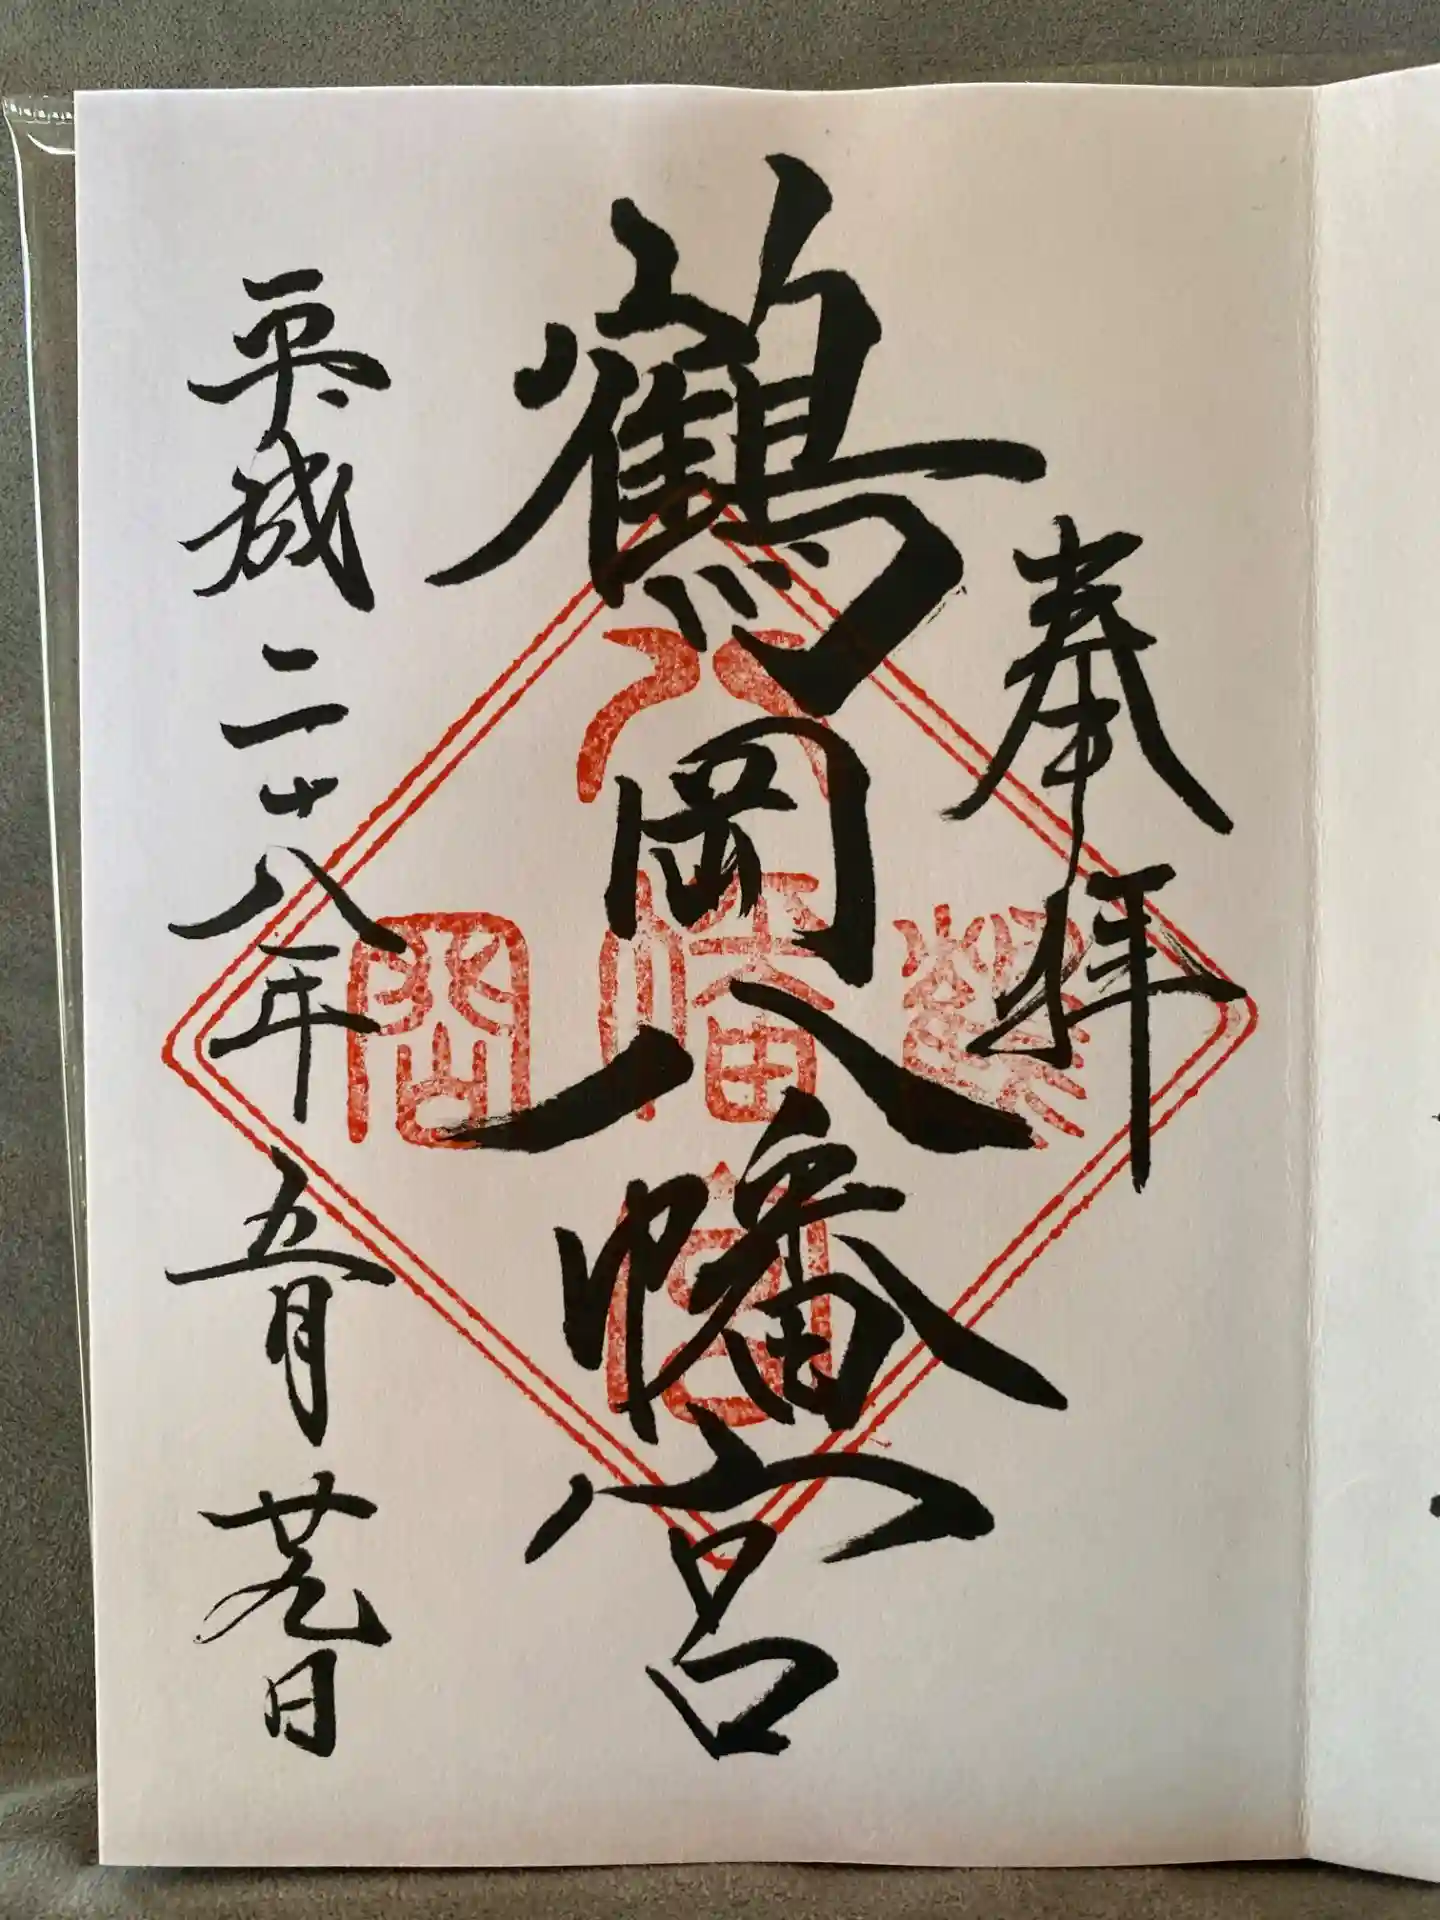 奉拝
鶴岡八幡宮
平成二十八年五月廿九日
鶴岡
八幡
宮